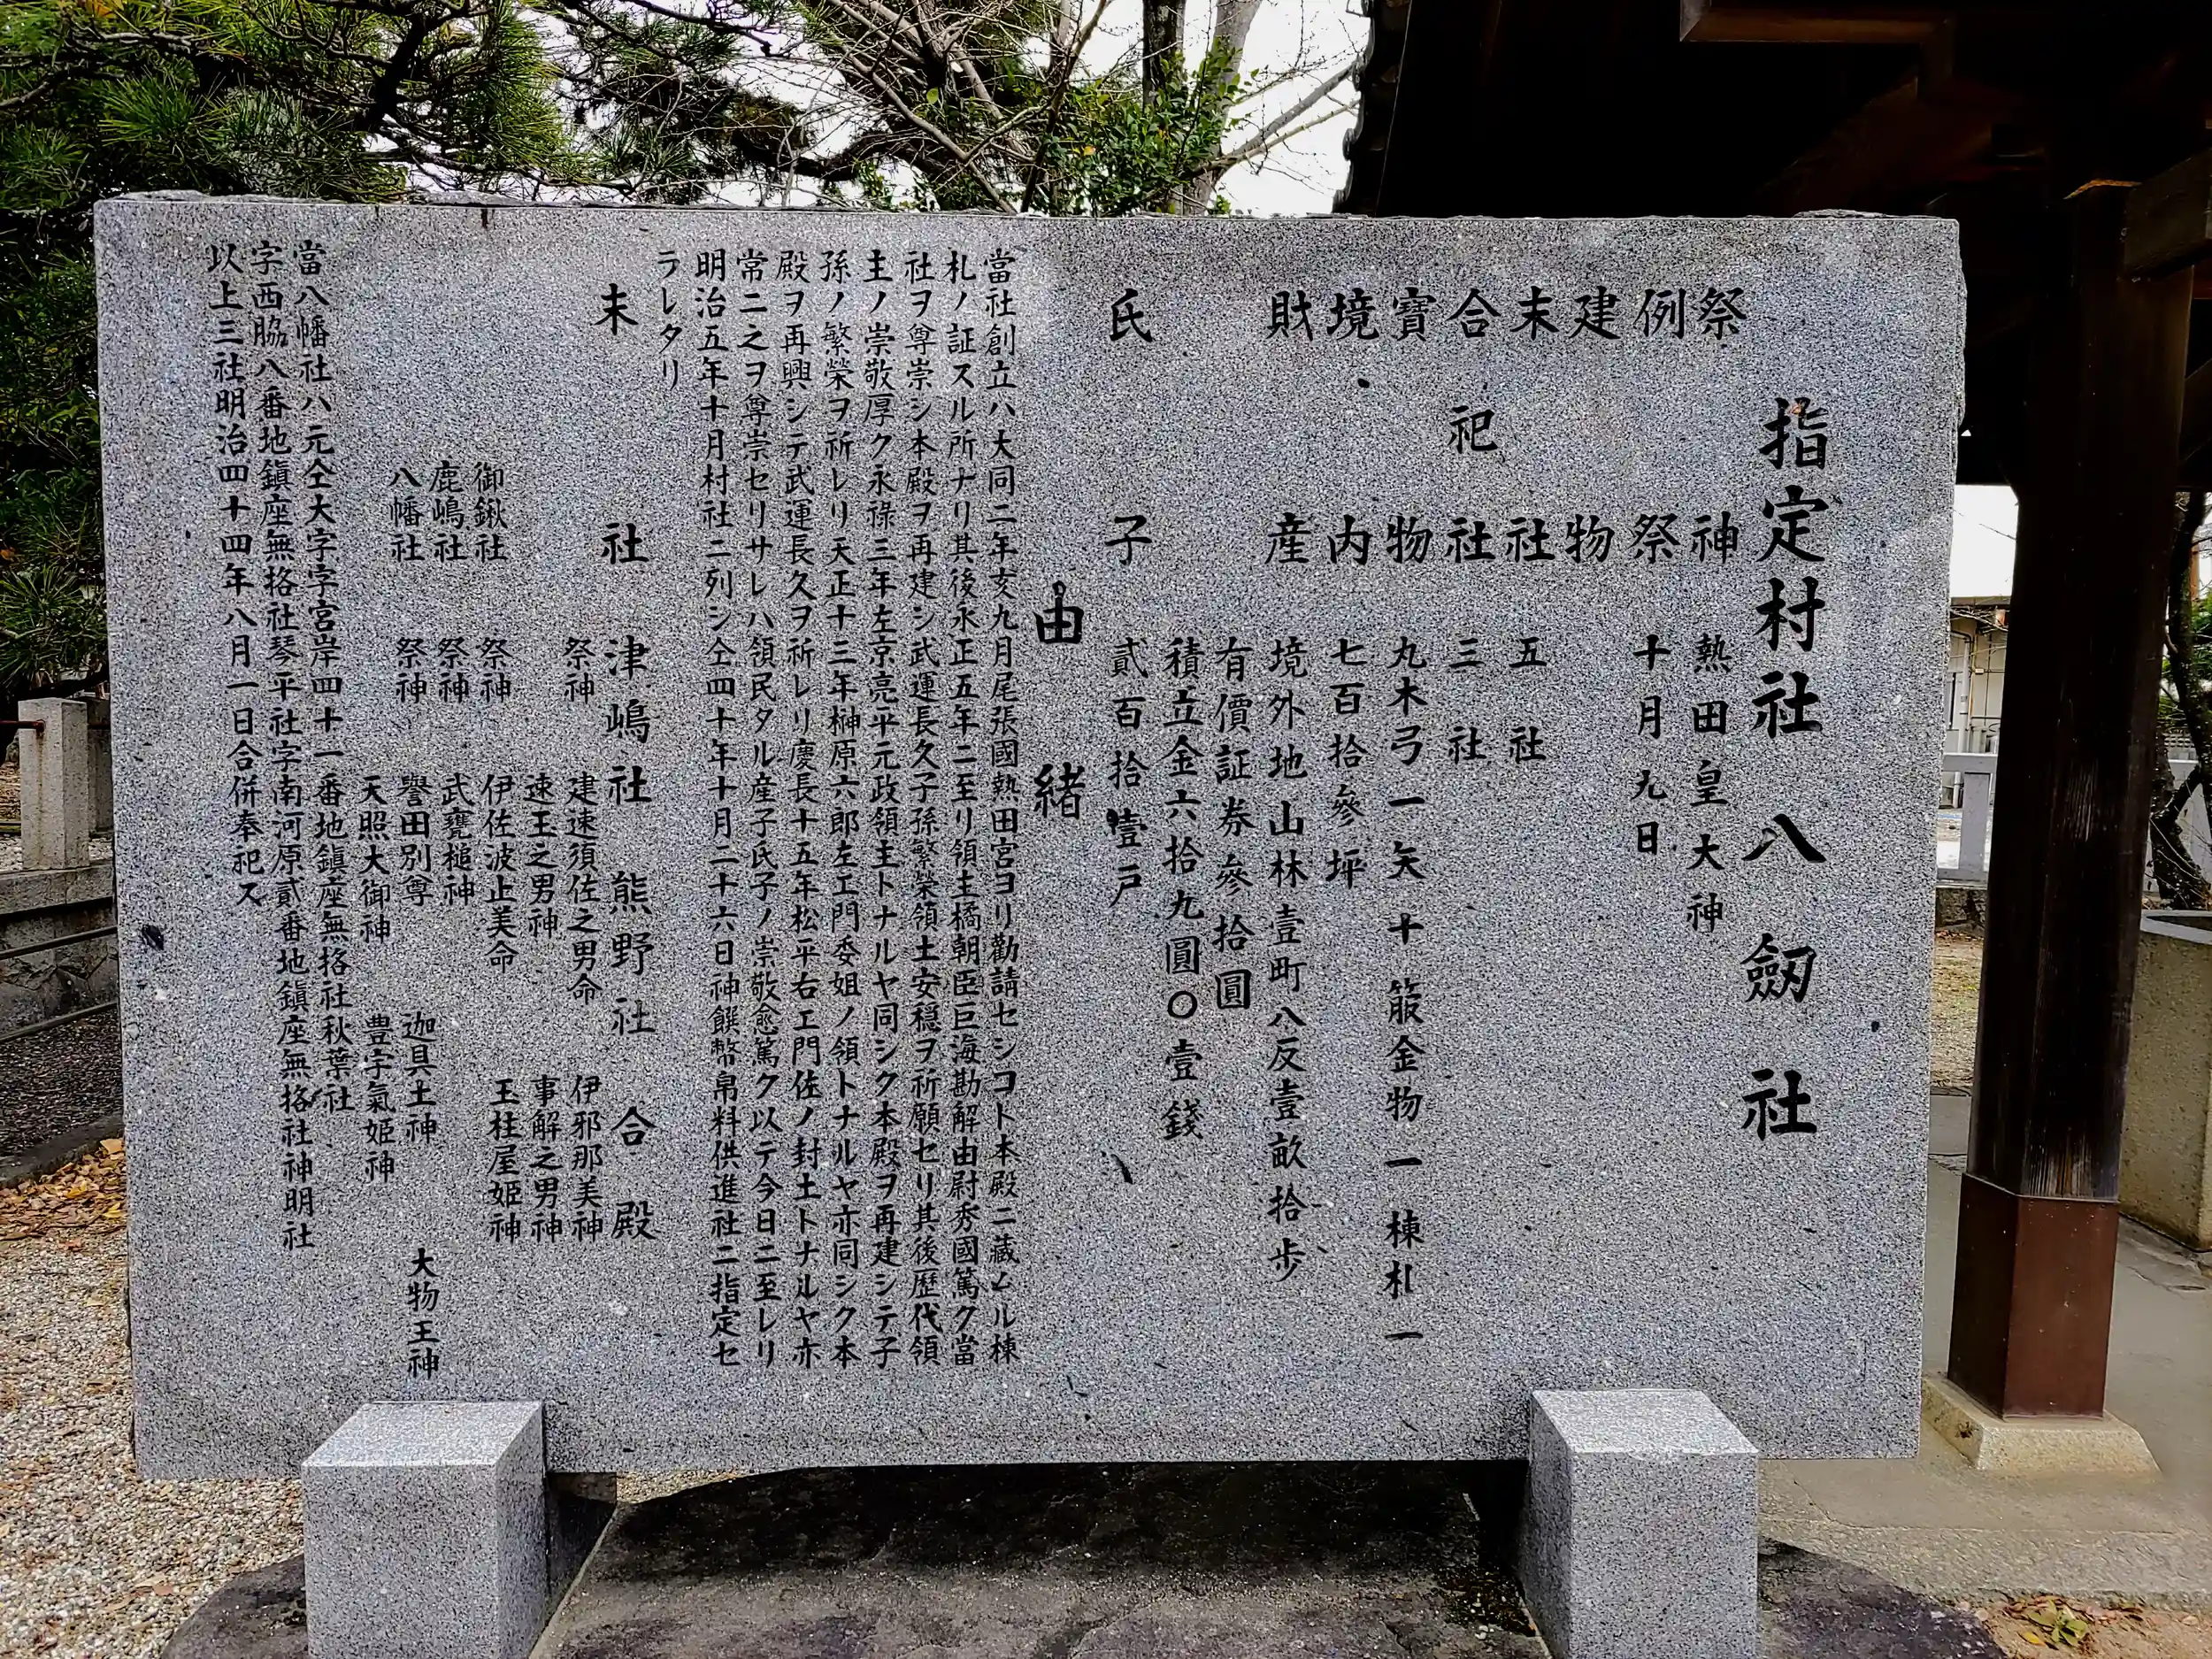 指定村社 八劔社
祭神 熱田皇大神
例祭 十月九日
建物
末社 五社
合祀社 三社
寶物 丸木弓一矢十箙金物一棟札一
境内 七百拾參坪
財産 境外地山林壹町八反壹畝拾歩
有價証券參拾圓
積立金六拾九圓〇壹錢
氏子 貳百拾壹戸
由緒
當社創立ハ大同二年亥九月尾張國熱田宮ヨリ勸請セシコト本殿ニ藏ムル棟
札ノ証スル所ナリ其後永正五年ニ至リ領主橘朝臣巨海勘解由尉秀國篤ク當
社ヲ尊崇シ本殿ヲ再建シ武運長久子孫繁榮領土安穏ヲ祈願セリ其後歴代領
主ノ崇敬厚ク永祿三年左京亮平元政領主トナルヤ同シク本殿ヲ再建シテ子
孫ノ繁榮ヲ祈レリ天正十三年榊原六郎左エ門委姐ノ領トナルヤ亦同シク本
殿ヲ再興シテ武運長久ヲ祈レリ慶長十五年松平右エ門佐ノ封土トナルヤ亦
常ニ之ヲ尊崇セリサレハ領民タル産子氏子ノ崇敬愈篤ク以テ今日ニ至レリ
明治五年十月村社ニ列シ仝四十年十月二十六日神饌幣帛料供進社ニ指定セ
ラレタリ
末社 津嶋社 熊野社 合殿
祭神 建速須佐之男命 伊邪那美神
速玉之男神 事解之男神
御鍬社 祭神 伊佐波止美命 玉柱屋姫神
鹿嶋社 祭神 武甕槌神
八幡社 祭神 譽田別尊 迦具土神 大物主神
天照大御神 豊宇氣姫神
當八幡社ハ元仝大字字宮岸四十一番地鎭座無挌社秋葉社
字西脇八番地鎭座無格社琴平社字南河原貳番地鎭座無挌社神明社
以上三社明治四十四年八月一日合併奉祀ス